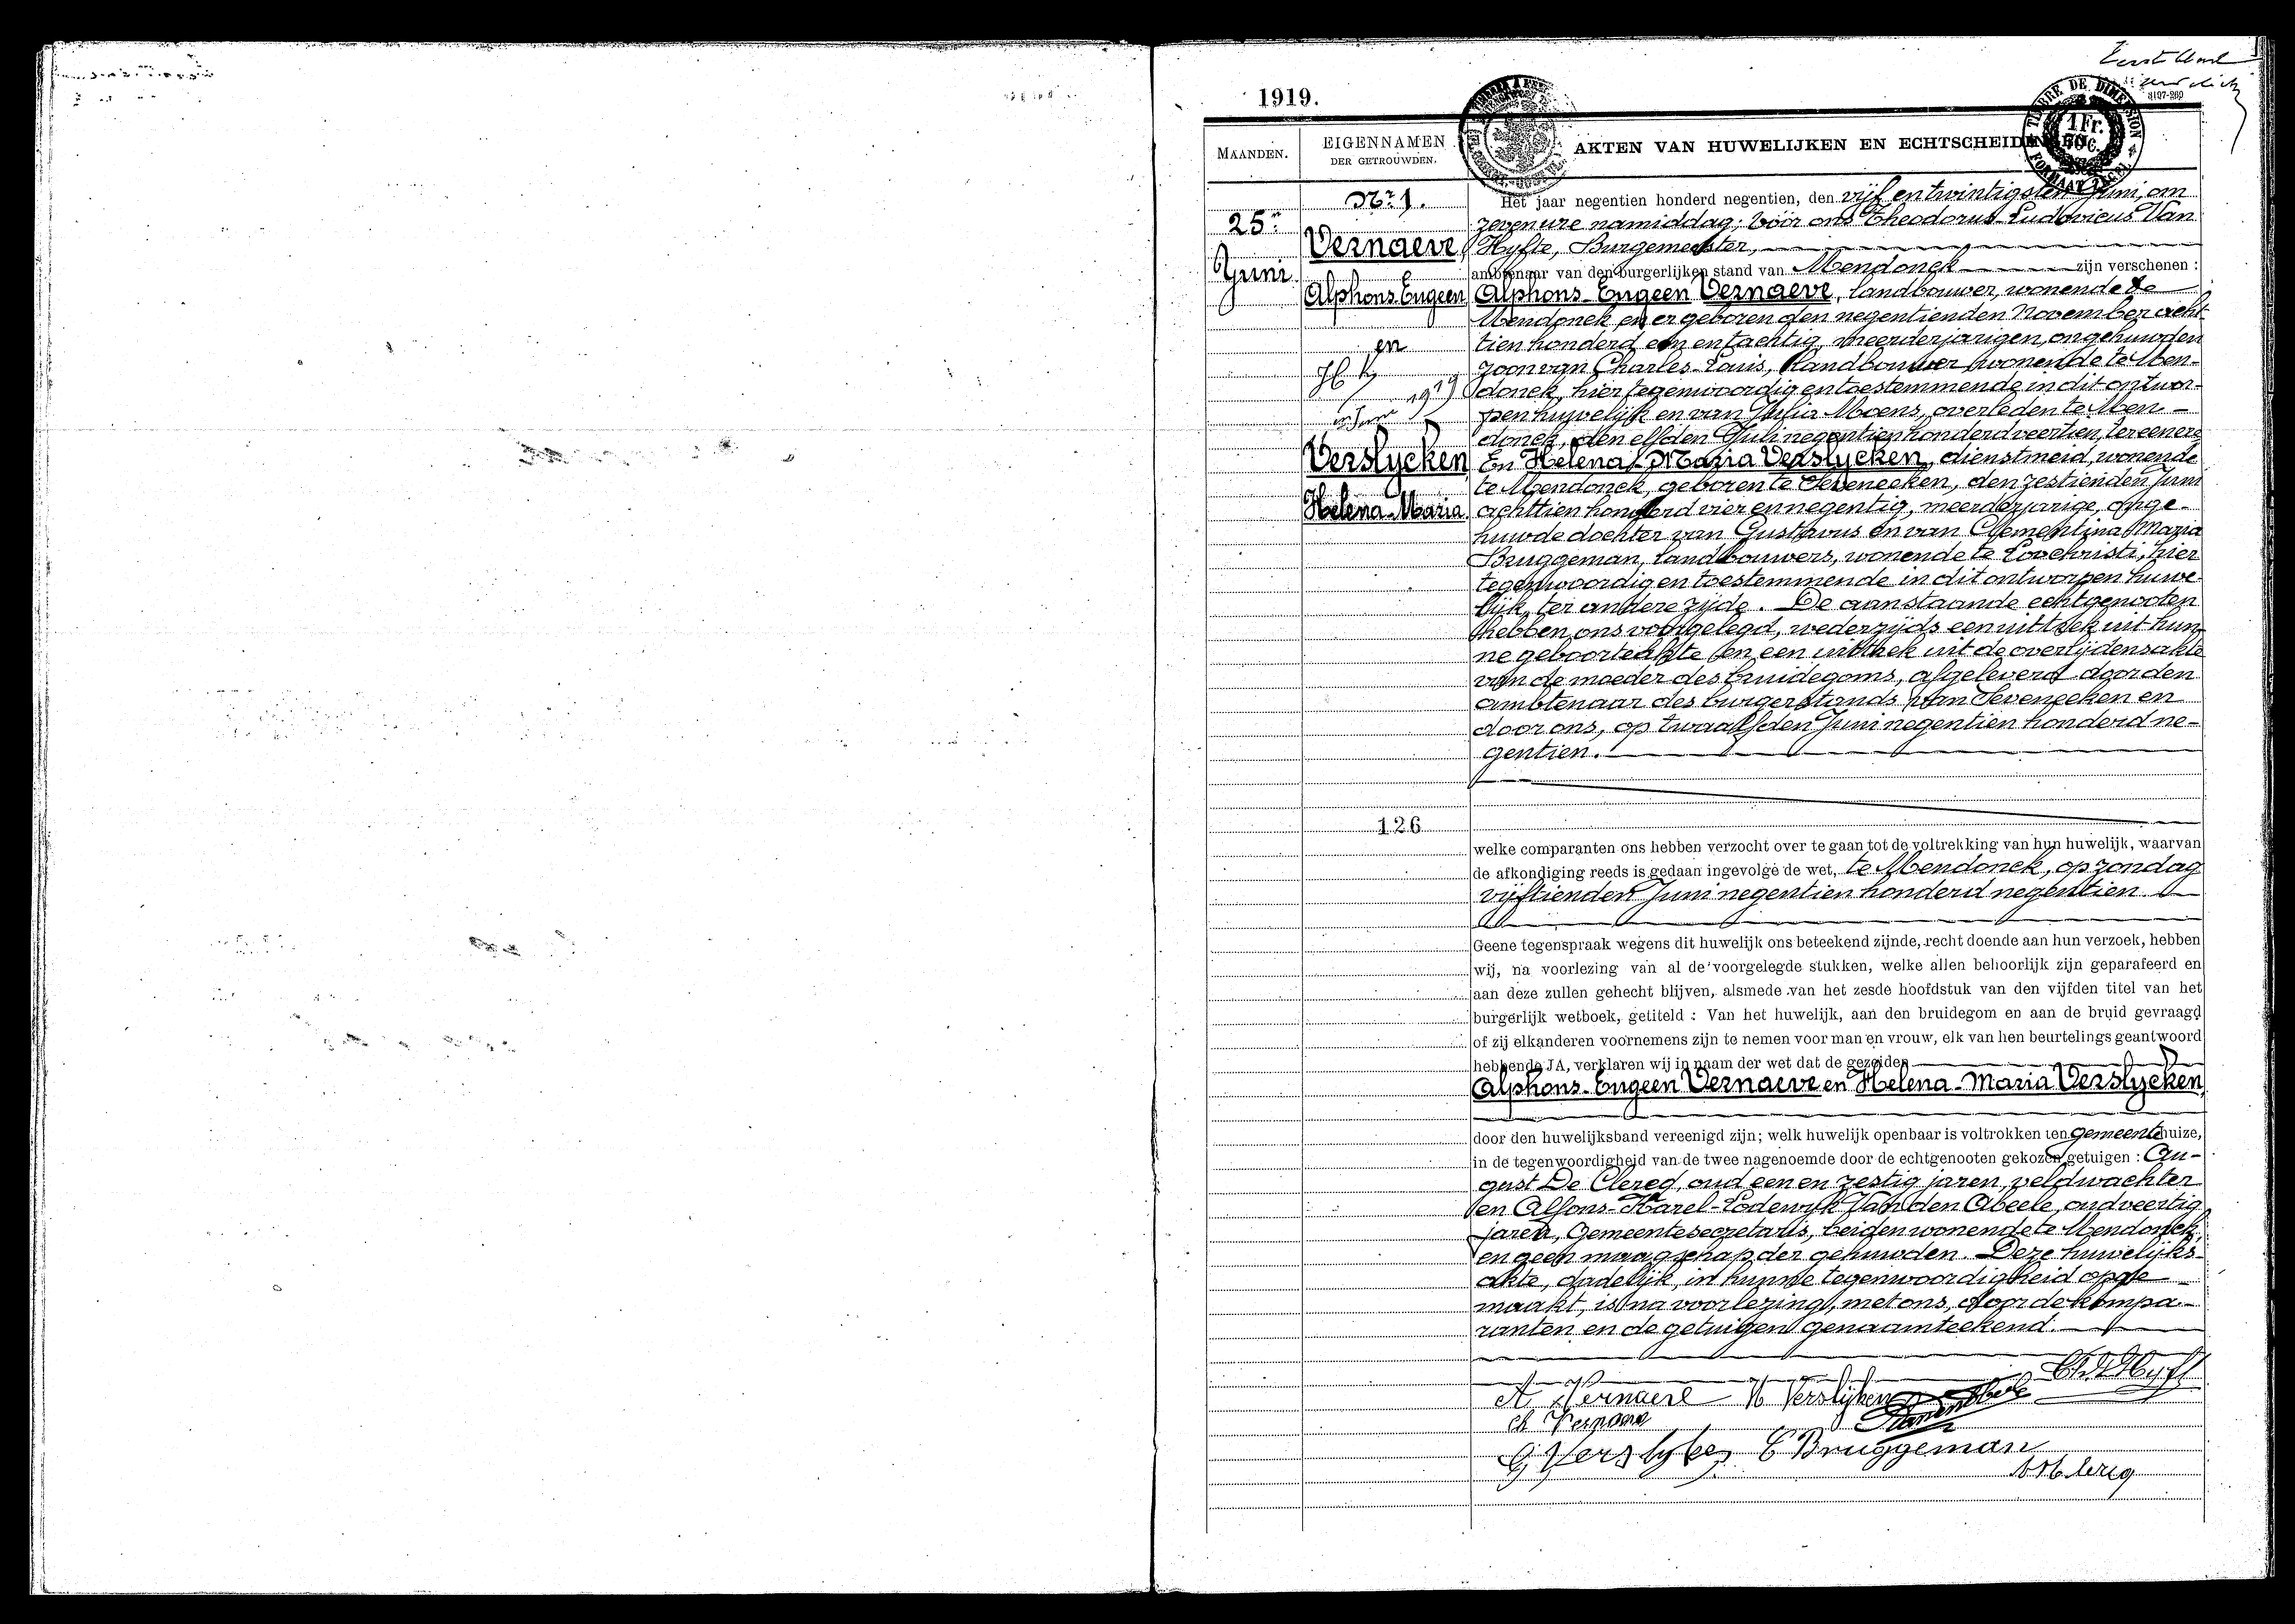 1919.
8197-260
TIMBRE DE DIMENSION
1 Fr. 50 C.
MAANDEN.
EIGENNAMEN
DER GETROUWDEN.
AKTEN VAN HUWELIJKEN EN ECHTSCHEIDIN
25n
Juni
Nr 1.
Vernaeve,
Alphons-Eugeen
en
1919
Verslycken
Helena-Maria
126
Het jaar negentien honderd negentien, den vijf en twintigsten Juni, om
zeven ure namiddag; vóór ons Theodorus-Ludovicus Van
Hyfte, Burgemeester,
ambtenaar van den burgerlijken stand van Mendonck zijn verschenen :
Alphons-Eugeen Vernaeve, landbouwer, wonende te
Mendonck en er geboren den negentienden November acht-
tien honderd een en tachtig, meerderjarigen, ongehuwden
zoon van Charles-Louis, landbouwer, wonende te Men-
donck, hier tegenwoordig en toestemmende in dit ontwor-
pen huwelijk en van Julia Moens, overleden te Men-
donck, den elfden Juli negentien honderd veertien, ter eenere
En Helena-Maria Verslycken, dienstmeid, wonende
te Mendonck, geboren te Seveneeken, den zestienden Juni
achttien honderd vier en negentig, meerderjarige, onge-
huwde dochter van Gustavus en van Clementina Maria
Bruggeman, landbouwers, wonende te Loochristi, hier
tegenwoordig en toestemmende in dit ontworpen huwe-
lijk, ter andere zijde. De aanstaande echtgenooten
hebben ons voorgelegd, wederzijds een uittrek uit hun-
ne geboorteakte en een uittrek uit de overlijdensakte
van de moeder des bruidegoms, afgeleverd door den
ambtenaar des burgerstands van Seveneeken en
door ons, op twaalfden Juni negentien honderd ne-
gentien.
welke comparanten ons hebben verzocht over te gaan tot de voltrekking van hun huwelijk, waarvan
de afkondiging reeds is gedaan ingevolge de wet, te Mendonck, op zondag
vijftienden Juni negentien honderd negentien
Geene tegenspraak wegens dit huwelijk ons beteekend zijnde, recht doende aan hun verzoek, hebben
wij, na voorlezing van al de voorgelegde stukken, welke allen behoorlijk zijn geparafeerd en
aan deze zullen gehecht blijven, alsmede van het zesde hoofdstuk van den vijfden titel van het
burgerlijk wetboek, getiteld : Van het huwelijk, aan den bruidegom en aan de bruid gevraagd
of zij elkanderen voornemens zijn te nemen voor man en vrouw, elk van hen beurtelings geantwoord
hebbende JA, verklaren wij in naam der wet dat de gezeiden
Alphons-Eugeen Vernaeve en Helena-Maria Verslycken,
door den huwelijksband vereenigd zijn; welk huwelijk openbaar is voltrokken ten gemeentehuize,
in de tegenwoordigheid van de twee nagenoemde door de echtgenooten gekozen getuigen : Au-
gust De Clercq, oud een en zestig jaren, veldwachter
en Alfons-Karel-Lodewyk Van den Abeele, oud veertig
jaren, Gemeentesecretaris, beiden wonende te Mendonck,
en geen maagschap der gehuwden. Deze huwelijks-
akte, dadelijk, in hunne tegenwoordigheid opge-
maakt, is na voorlezing, met ons, door de kompa-
ranten en de getuigen genaamteekend.
A Vernaeve H Verslijken
G Verslyken C Bruggeman